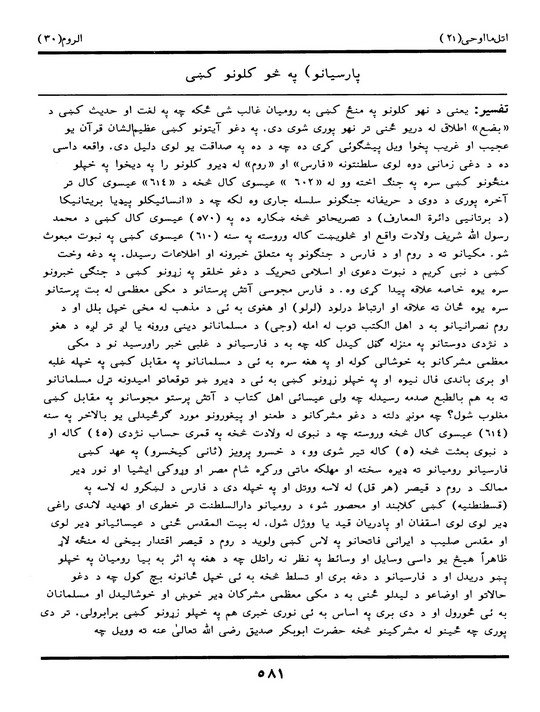 اتل مااوحی(۲۱) الروم(۳۰)
پارسیانو) په څو کلونو کښی
تفسیر: یعنی د نهو کلونو په منځ کښی به رومیان غالب شی ځکه چه په لغت او حدیث کښی د
«بضع» اطلاق له دریو ځنی تر نهو پوری شوی دی. په دغو آیتونو کښی عظیم‌الشان قرآن یو
عجیب او غریب پخوا ویل پیشگوئی کړی ده چه د ده په صداقت یو لوی دلیل دی. واقعه داسی
ده د دغی زمانی دوه لوی سلطنتونه «فارس» او «روم» له ډیرو کلونو را په دیخوا په خپلو
منځونو کښی سره په جنگ اخته وو له «۶۰۲» عیسوی کال څخه د «۶۱۴» عیسوی کال تر
آخره پوری د دوی د حریفانه جنگونو سلسله جاری وه لکه چه د «انسائیکلو پیډیا بریتانیکا
(د برتانیی دائرة المعارف) د تصریحاتو څخه ښکاره ده په (۵۷۰) عیسوی کال کښی د محمد
رسول الله شریف ولادت واقع او څلویښت کاله وروسته په سنه (۶۱۰) عیسوی کښی په نبوت مبعوث
شو. مکیانو ته د روم او د فارس د جنگونو په متعلق خبرونه او اطلاعات رسیدل. په دغه وخت
کښی د نبی کریم د نبوت دعوی او اسلامی تحریک د دغو خلقو په زړونو کښی د جنگی خبرونو
سره یوه خاصه علاقه پیدا کړی وه. د فارس مجوسی آتش پرستانو د مکی معظمی له بت پرستانو
سره یوه ځان ته علاقه او ارتباط درلود (لرلو) او هغوی به ئی د مذهب له مخی خپل بلل او د
روم نصرانیانو به د اهل الکتب توب له امله (وجی) د مسلمانانو دینی وروڼه یا لږ تر لږه د هغو
د نژدی دوستانو په منزله گڼل کیدل کله چه به د فارسیانو د غلبی خبر راورسید نو د مکی
معظمی مشرکانو به خوشالی کوله او په هغه سره به ئی د مسلمانانو په مقابل کښی په خپله غلبه
او بری باندی فال نیوه او په خپلو زړونو کښی به ئی د ډیرو ښو توقعاتو امیدونه تړل مسلمانانو
ته به هم بالطبع صدمه رسیدله چه ولی عیسائی اهل کتاب د آتش پرستو مجوسانو په مقابل کښی
مغلوب شول؟ چه مونږ دلته د دغو مشرکانو د طعنو او پیغورونو مورد گرځیدلی یو بالاخر په سنه
(۶۱۴) عیسوی کال څخه وروسته چه د نبوی له ولادت څخه په قمری حساب نژدی (۴۵) کاله او
د نبوی بعثت څخه (۵) کاله تیر شوی وو، د خسرو پرویز (ثانی کیخسرو) په عهد کښی
فارسیانو رومیانو ته ډیره سخته او مهلکه ماتی ورکړه شام مصر او وړوکی ایشیا او نور ډیر
ممالک د روم د قیصر (هر قل) له لاسه ووتل او په خپله دی د فارس د لښکرو له لاسه په
(قسطنطنیه) کښی کلابند او محصور شو، د رومیانو دارالسلطنت تر خطری او تهدید لاندی راغی
ډیر لوی لوی اسقفان او پادریان قید یا ووژل شول. له بیت المقدس ځنی د عیسائیانو ډیر لوی
او مقدس صلیب د ایرانی فاتحانو په لاس کښی ولوید د روم د قیصر اقتدار بیخی له منځه لاړ
ظاهراً هیخ یو داسی وسایل او وسائط په نظر نه راتلل چه د هغه په اثر به بیا رومیان په خپلو
پښو دریدل او د فارسیانو د دغه بری او تسلط څخه به ئی خپل ځانونه بچ کول چه د دغو
حالاتو او اوضاعو د لیدلو ځنی به د مکی معظمی مشرکان ډیر خوښ او خوشالیدل او مسلمانان
به ئی ځورول او د دی بری په اساس به ئی نوری خبری هم په خپلو زړونو کښی برابرولی. تر دی
پوری چه ځینو له مشرکینو څخه حضرت ابوبکر صدیق رضی الله تعالیٰ عنه ته وویل چه
۵۸۱